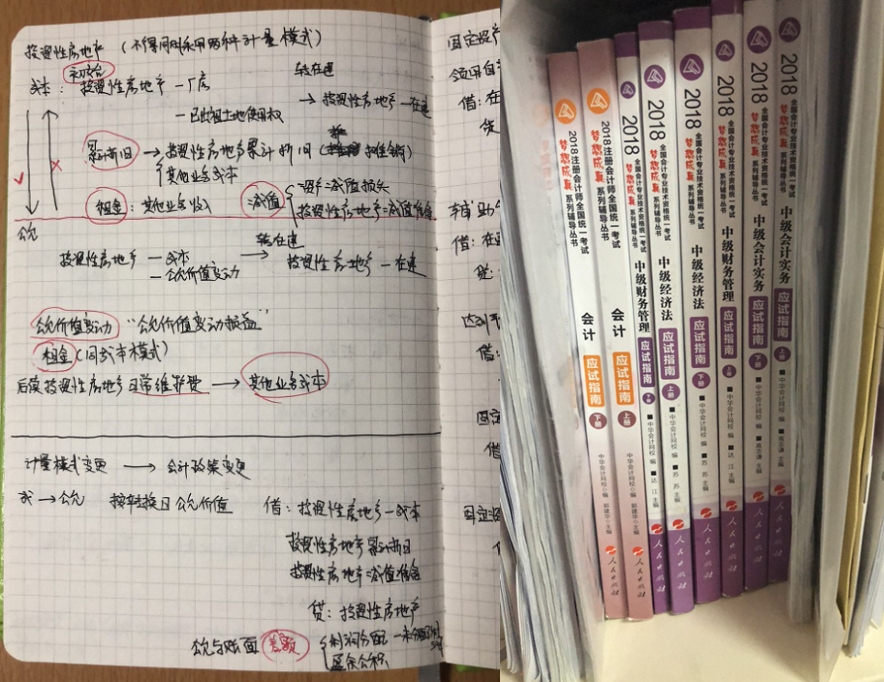 投资性房地产 (不得同时采用两种计量模式)
初始
成本: 投资性房地产 — 厂房
转在建
→ 投资性房地产 — 在建
— 已出租土地使用权
累计折旧 → 投资性房地产累计折旧 (摊销)
其他业务成本
租金: 其他业务收入
减值
资产减值损失
投资性房地产减值准备
公允
投资性房地产 — 成本
— 公允价值变动
转在建
→ 投资性房地产 — 在建
公允价值变动 "公允价值变动损益"
租金 (同成本模式)
后续投资性房地产日常维护费 → 其他业务成本
计量模式变更 → 会计政策变更
成 → 公允 按转换日公允价值 借: 投资性房地产 — 成本
投资性房地产累计折旧
投资性房地产减值准备
贷: 投资性房地产
公允与账面 差额
利润分配 —
盈余公积
固定资产
领用自
借: 在
贷
辅助
借: 在
贷:
达到
借:
固定
借
固定
2018 注册会计师全国统一考试 梦想成真 系列辅导丛书 会计 应试指南 下册 中华会计网校 编 郭建华 主编 人民出版社
2018 注册会计师全国统一考试 梦想成真 系列辅导丛书 会计 应试指南 上册 中华会计网校 编 郭建华 主编 人民出版社
2018 全国会计专业技术资格统一考试 梦想成真 系列辅导丛书 中级财务管理 应试指南 下册 中华会计网校 编 达江 主编 人民出版社
2018 全国会计专业技术资格统一考试 梦想成真 系列辅导丛书 中级经济法 应试指南 上册 中华会计网校 编 苏苏 主编 人民出版社
2018 全国会计专业技术资格统一考试 梦想成真 系列辅导丛书 中级经济法 应试指南 下册 中华会计网校 编 苏苏 主编 人民出版社
2018 全国会计专业技术资格统一考试 梦想成真 系列辅导丛书 中级财务管理 应试指南 上册 中华会计网校 编 达江 主编 人民出版社
2018 全国会计专业技术资格统一考试 梦想成真 系列辅导丛书 中级会计实务 应试指南 下册 中华会计网校 编 高志谦 主编 人民出版社
2018 全国会计专业技术资格统一考试 梦想成真 系列辅导丛书 中级会计实务 应试指南 上册 中华会计网校 编 高志谦 主编 人民出版社